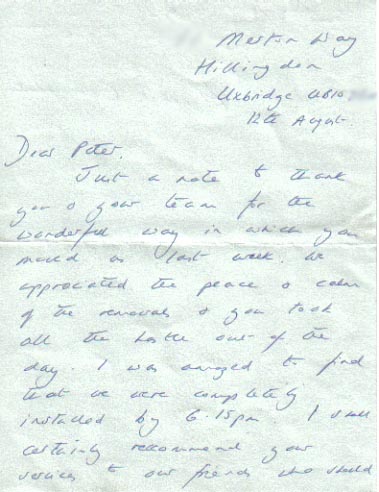 Merton Way
Hillingdon
Uxbridge UB10
12th August
Dear Peter,
Just a note to thank
you & your team for the
wonderful way in which you
moved us last week. We
appreciated the peace & calm
of the removals & you took
all the hassle out of the
day. I was amazed to find
that we were completely
installed by 6.15pm. I shall
certainly recommend your
services to our friends who should